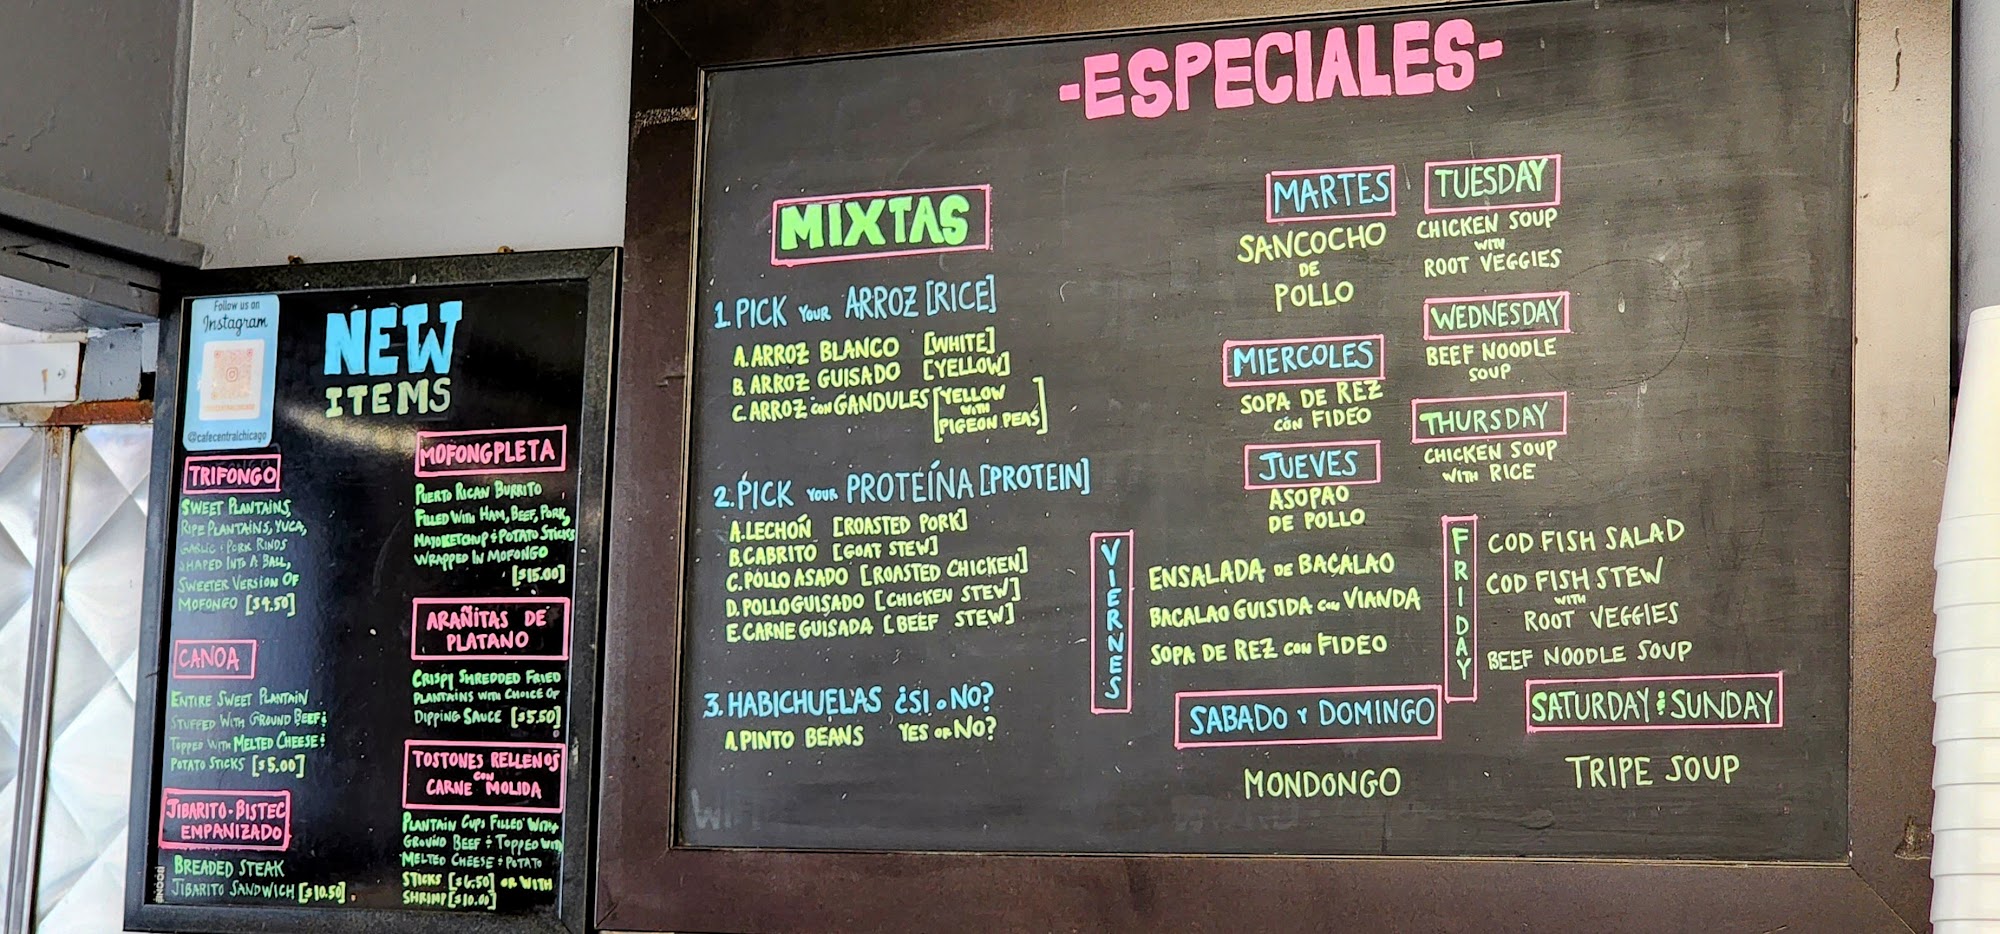 Follow us on
Instagram
@cafecentralchicago
NEW
ITEMS
TRIFONGO
SWEET PLANTAINS,
RIPE PLANTAINS, YUCA,
GARLIC & PORK RINDS
SHAPED INTO A BALL,
SWEETER VERSION OF
MOFONGO [$9.50]
CANOA
ENTIRE SWEET PLANTAIN
STUFFED WITH GROUND BEEF &
TOPPED WITH MELTED CHEESE &
POTATO STICKS [$5.00]
JIBARITO-BISTEC
EMPANIZADO
BREADED STEAK
JIBARITO SANDWICH [$10.50]
MOFONGPLETA
PUERTO RICAN BURRITO
FILLED WITH HAM, BEEF, PORK,
MAYOKETCHUP & POTATO STICKS
WRAPPED IN MOFONGO
[$15.00]
ARAÑITAS DE
PLATANO
CRISPY SHREDDED FRIED
PLANTAINS WITH CHOICE OF
DIPPING SAUCE [$5.50]
TOSTONES RELLENOS
CON
CARNE MOLIDA
PLANTAIN CUPS FILLED WITH
GROUND BEEF & TOPPED WITH
MELTED CHEESE & POTATO
STICKS [$6.50] OR WITH
SHRIMP [$10.00]
-ESPECIALES-
MIXTAS
1. PICK YOUR ARROZ [RICE]
A. ARROZ BLANCO [WHITE]
B. ARROZ GUISADO [YELLOW]
C. ARROZ CON GANDULES [YELLOW
WITH
PIGEON PEAS]
2. PICK YOUR PROTEÍNA [PROTEIN]
A. LECHOŃ [ROASTED PORK]
B. CABRITO [GOAT STEW]
C. POLLO ASADO [ROASTED CHICKEN]
D. POLLO GUISADO [CHICKEN STEW]
E. CARNE GUISADA [BEEF STEW]
3. HABICHUELAS ¿SI o NO?
A. PINTO BEANS YES OR NO?
MARTES
SANCOCHO
DE
POLLO
TUESDAY
CHICKEN SOUP
WITH
ROOT VEGGIES
MIERCOLES
SOPA DE REZ
CON FIDEO
WEDNESDAY
BEEF NOODLE
SOUP
JUEVES
ASOPAO
DE POLLO
THURSDAY
CHICKEN SOUP
WITH RICE
VIERNES
ENSALADA DE BACALAO
BACALAO GUISIDA CON VIANDA
SOPA DE REZ CON FIDEO
FRIDAY
COD FISH SALAD
COD FISH STEW
WITH
ROOT VEGGIES
BEEF NOODLE SOUP
SABADO Y DOMINGO
MONDONGO
SATURDAY & SUNDAY
TRIPE SOUP